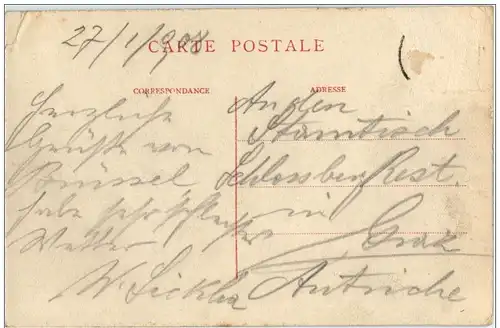 27/1/908
CARTE POSTALE
CORRESPONDANCE
ADRESSE
Herzliche
Grüße von
Brüssel,
habe sehr schlechtes
Wetter
An den
Stamtisch
Schlossberg Rest.
in
Graz
Autriche